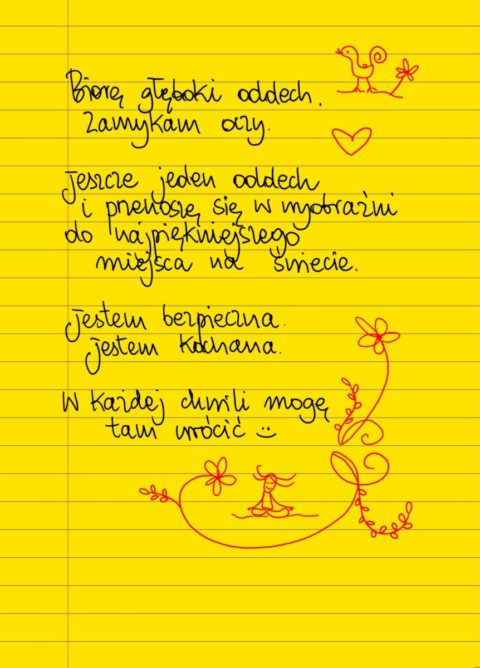 Biorę głęboki oddech.
Zamykam oczy.
Jeszcze jeden oddech
i przenoszę się w wyobraźni
do najpiękniejszego
miejsca na świecie.
Jestem bezpieczna.
Jestem kochana.
W każdej chwili mogę
tam wrócić :)